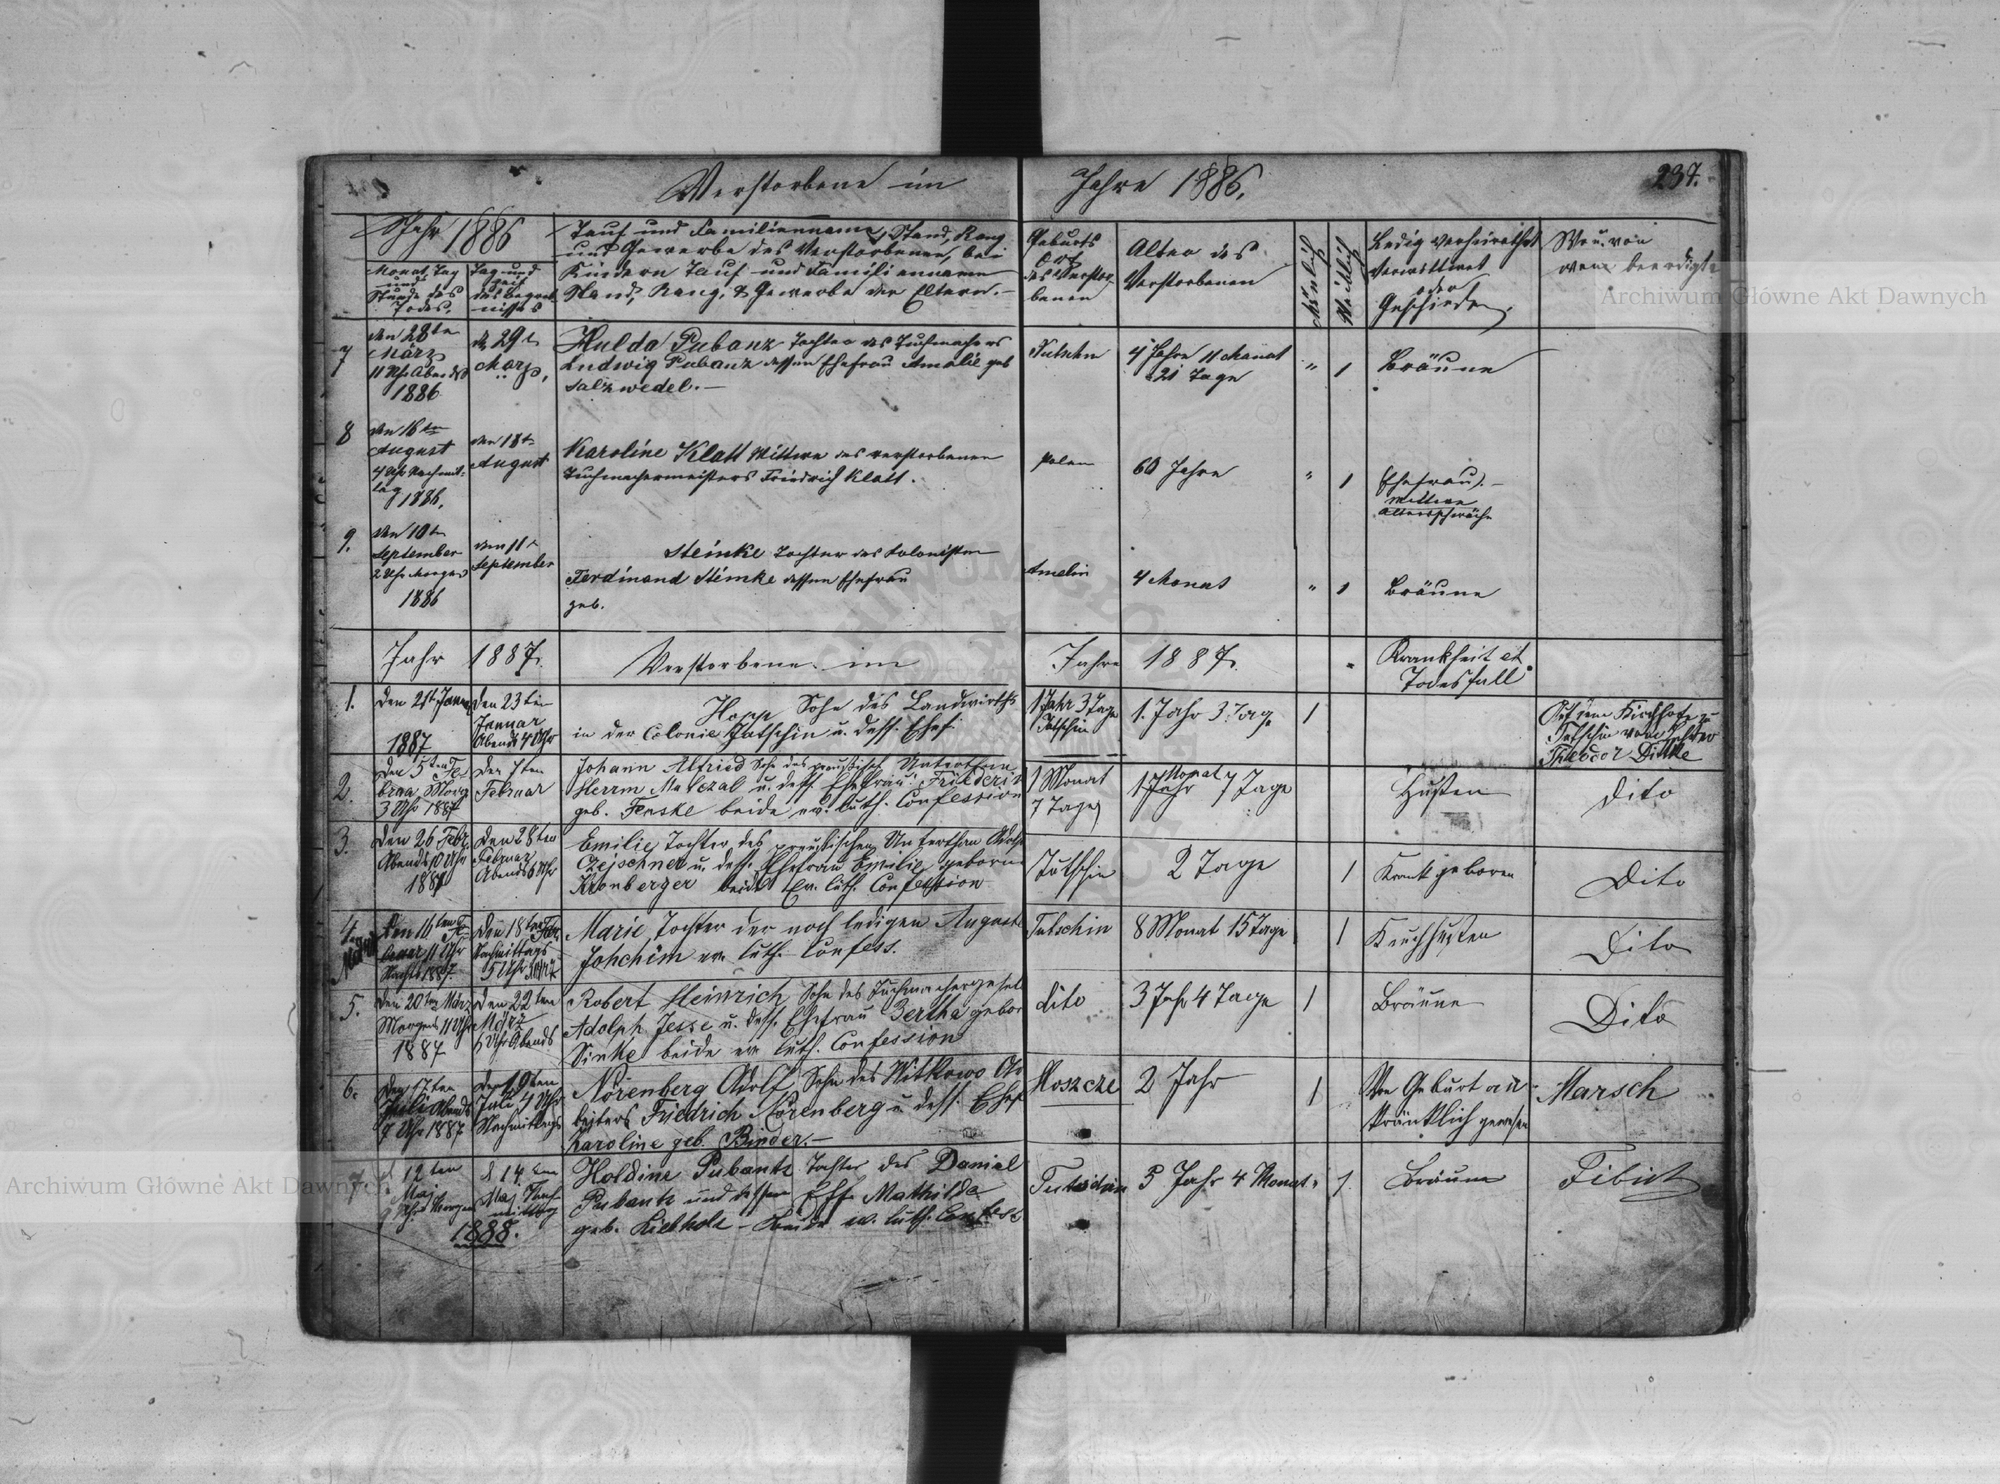 Verstorbene im Jahre 1886. 237.
Jahr 1886
Tauf und Familienname, Stand, Rang
und Gewerbe des Verstorbenen, bei
Kindern Tauf und Familienname
Stand, Rang, & Gewerbe der Eltern.
Monat, Tag
und
Stunde des
Todes.
Tag und
Zeit
des Begräb
nisses
Geburts
Ort
des Verstor-
benen
Alter des
Verstorbenen
Männlich
Weiblich
Ledig verheirathet
Verwittwet
oder
Geschieden.
Wo u. von
wem beerdigt
7
den 28ten
März
11 Uhr Abends
1886
d. 29t
März,
Hulda Pubanz Tochter des Tuchmachers
Ludwig Pubanz dessen Ehefrau Amalie geb
Salzwedel. —
Tutschin
4 Jahre 11 Monat
21 Tage
" 1
Bräune
8
den 16ten
August
4 Uhr Nachmit-
tag
1886.
den 18t
August
Karoline Klatt Wittwe des verstorbenen
Tuchmachermeisters Friedrich Klatt.
Polen
60 Jahre
" 1
Ehefrau. —
Wittwe
Altersschwäche
9.
den 10ten
September
2 Uhr Morgens
1886
den 11t
September
Steinke Tochter des Kolonisten
Ferdinand Steinke dessen Ehefrau
geb.
Amelin
4 Monat
" 1
Bräune
Jahr 1887.
Verstorbene im Jahre 1887.
Krankheit et
Todesfall
1.
den 21t Januar
1887
den 23ten
Januar
Abends 4 Uhr
Hopp Sohn des Landwirths
in der Colonie Tutschin u. dess. Ehef
1 Jahr 3 Tage
Tutschin
1. Jahr 3. Tage
1
Auf dem Kirchhofe zu
Tutschin vom Lehrer
Theodor Dittke
2.
Den 5ten Fe-
bruar Morg
3 Uhr 1887
Den 7ten
Februar
Johann Alfried Sohn des preußisch Unterthan
Herrm Matczal u. dess. Ehefrau Friederik
geb. Fenske beide ev. luth. Confession
1 Monat
7 Tage
1 Jahr Monat 7 Tage
Husten
Dito
3.
Den 26 Febr.
Abends 10 Uhr
1887
Den 28ten
Februar
Abends 6 Uhr
Emilie Tochter des preußischen Unterthan Adolf
Czejschner u. dess. Ehefrau Emilie geborne
Kronberger beide Ev. luth. Confession
Tutschin
2 Tage
1
Krank geboren
Dito
4.
Den 16ten Fe-
bruar 11 Uhr
Nachts 1887.
Den 18ten Febr
Nachmittags
5 Uhr März
Marie Tochter der noch ledigen Auguste
Johchim ev. luth. Confess.
Tutschin
8 Monat 15 Tage
1
Keuchhusten
Dito
5.
Den 20ten März
Morgens 11 Uhr
1887
Den 22ten
März
6 Uhr Abends
Robert Heinrich Sohn des Tuchmachergesell
Adolph Jesse u. dess. Ehefrau Bertha gebor
Sinke beide ev luth. Confession
dito
3 Jahr 4 Tage
1
Bräune
Dito
6.
Den 17ten
Juli Abends
7 Uhr 1887
Den 19ten
Juli 4 Uhr
Nachmittags
Nörenberg Adolf, Sohn des Witkowo Ar
beiters Friedrich Nörenberg u dess. Ehef
Karoline geb. Binder. —
Moszcze
2 Jahr
1
Von Geburt an
kränklich gewesen
Marsch
7.
d. 12ten
Maj
9 Uhr Morgen
d 14.ten
Maj Nach-
mittag
1888.
Holdine Pubantz Tochter des Daniel
Pubantz und dessen Eff. Mathilde
geb. Liebholz — Beide ev. luth. Confess.
Tutschin
5 Jahr 4 Monat
" 1.
Bräune
Tibich
Archiwum Główne Akt Dawnych
Archiwum Główne Akt Dawnych